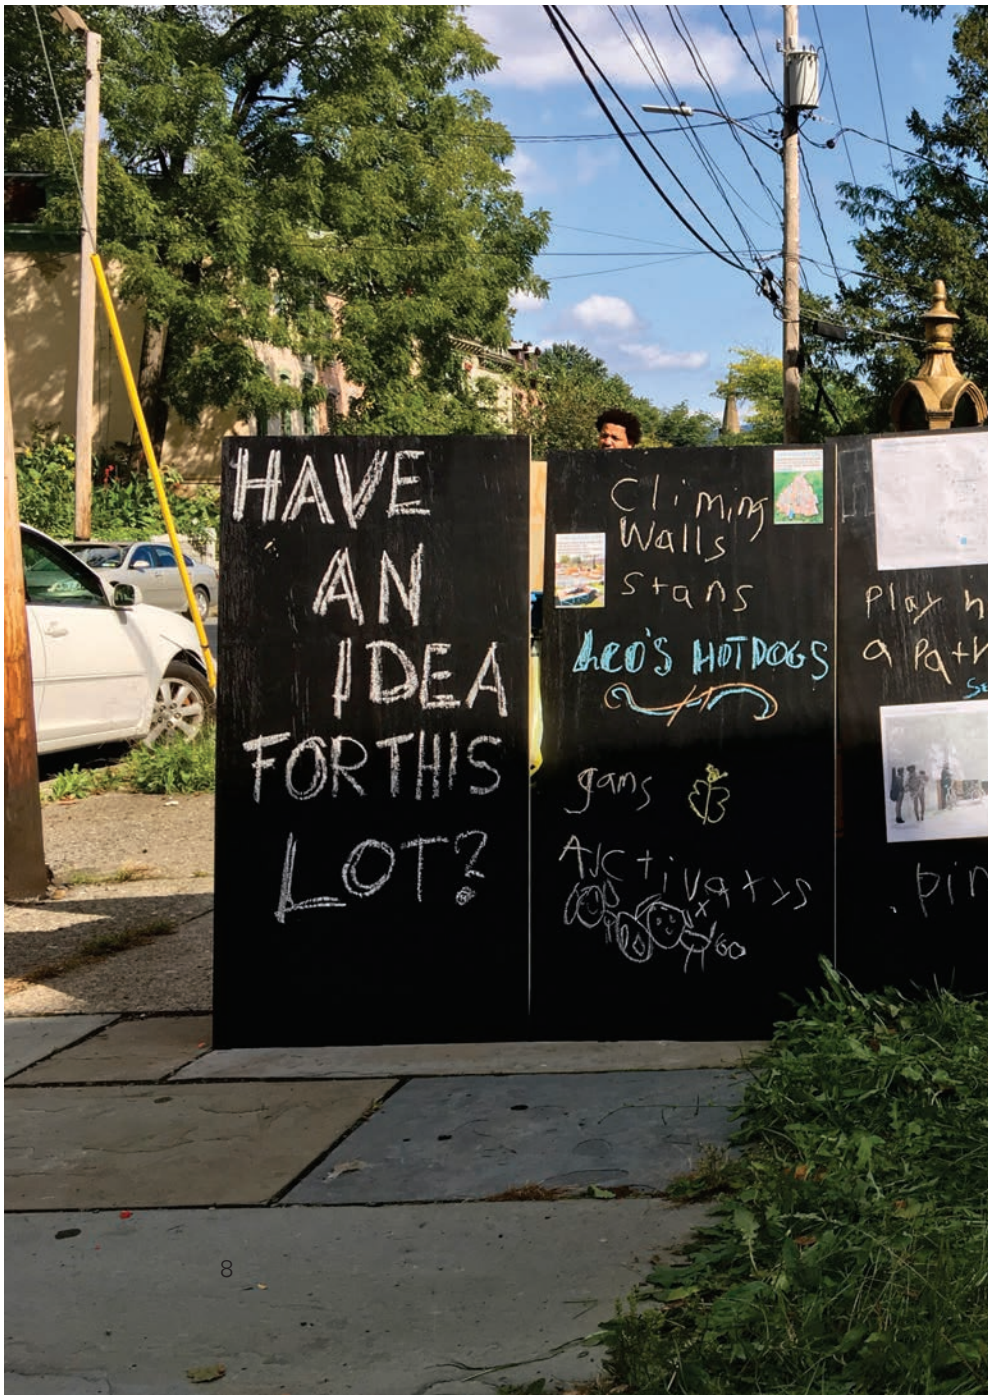 HAVE
AN
IDEA
FOR THIS
LOT?
Climing
Walls
stans
Leo'S HOTDOGS
gams
AJCtivatys
Play h
a Path
pin
8